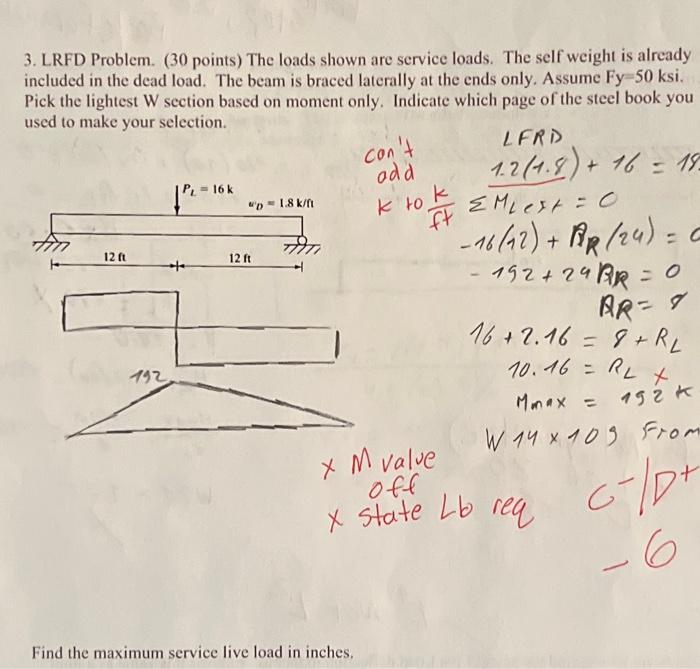 3. LRFD Problem. (30 points) The loads shown are service loads. The self weight is already
included in the dead load. The beam is braced laterally at the ends only. Assume Fy=50 ksi.
Pick the lightest W section based on moment only. Indicate which page of the steel book you
used to make your selection.
LFRD
can't
add
k to k/ft
1.2(1.8) + 16 = 18.
ΣMLest = 0
-16(12) + RR(24) = 0
-192 + 24RR = 0
RR = 8
16 + 2.16 = 8 + RL
10.16 = RL x
Mmax = 192 k
W 14 x 109 From
PL = 16 k
wD = 1.8 k/ft
12 ft
12 ft
192
x M value
off
x State Lb req
C-/D+
-6
Find the maximum service live load in inches.